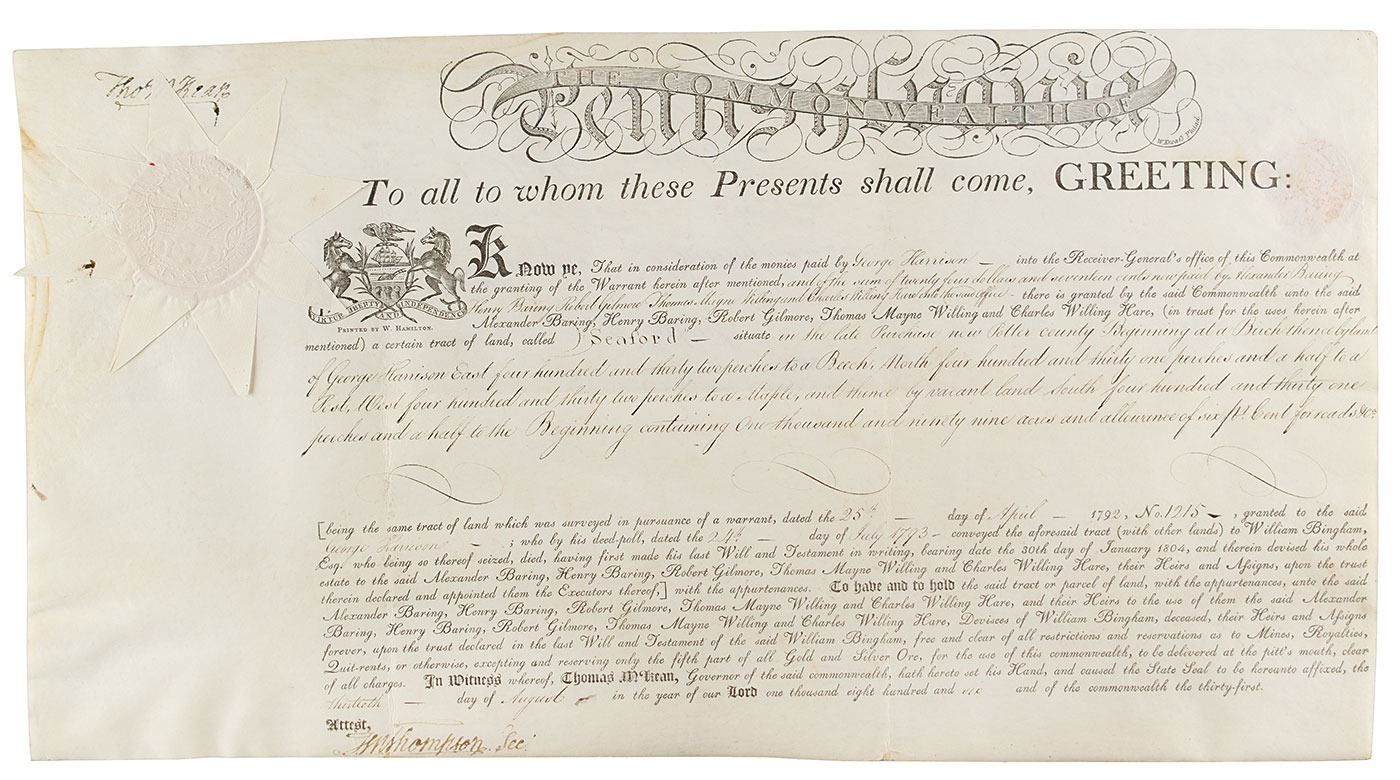 Thos M:Kean
THE COMMONWEALTH OF
Pennsylvania
To all to whom these Presents shall come, GREETING:
Know ye, That in consideration of the monies paid by George Harrison — into the Receiver-General's office of this Commonwealth at
the granting of the Warrant herein after mentioned, and of the sum of twenty four dollars and seventeen cents now paid by Alexander Baring
Henry Baring Robert Gilmore Thomas Mayne Willing and Charles Willing Hare into the said office - there is granted by the said Commonwealth unto the said
Alexander Baring, Henry Baring, Robert Gilmore, Thomas Mayne Willing and Charles Willing Hare, (in trust for the uses herein after
VIRTUE LIBERTY AND INDEPENDENCE
PRINTED BY W. HAMILTON.
mentioned) a certain tract of land, called Seaford — situate in the late Purchase now Potter county Beginning at a Birch thence by land
of George Harrison East four hundred and thirty two perches to a Beech, North four hundred and thirty one perches and a half to a
Post, West four hundred and thirty two perches to a Maple, and thence by vacant land South four hundred and thirty one
perches and a half to the Beginning containing One thousand and ninety nine acres and allowance of six pr Cent for roads &c:
[being the same tract of land which was surveyed in pursuance of a warrant, dated the 25th — day of April — 1792, No. 1215 —, granted to the said
George Harrison — ; who by his deed-poll, dated the 24th — day of July 1793 — conveyed the aforesaid tract (with other lands) to William Bingham,
Esq. who being so thereof seized, died, having first made his last Will and Testament in writing, bearing date the 30th day of January 1804, and therein devised his whole
estate to the said Alexander Baring, Henry Baring, Robert Gilmore, Thomas Mayne Willing and Charles Willing Hare, their Heirs and Assigns, upon the trust
therein declared and appointed them the Executors thereof,] with the appurtenances. To have and to hold the said tract or parcel of land, with the appurtenances, unto the said
Alexander Baring, Henry Baring, Robert Gilmore, Thomas Mayne Willing and Charles Willing Hare, and their Heirs to the use of them the said Alexander
Baring, Henry Baring, Robert Gilmore, Thomas Mayne Willing and Charles Willing Hare, Devisees of William Bingham, deceased, their Heirs and Assigns
forever, upon the trust declared in the last Will and Testament of the said William Bingham, free and clear of all restrictions and reservations as to Mines, Royalties,
Quit-rents, or otherwise, excepting and reserving only the fifth part of all Gold and Silver Ore, for the use of this commonwealth, to be delivered at the pitt's mouth, clear
of all charges. In Witness whereof, Thomas M'Kean, Governor of the said commonwealth, hath hereto set his Hand, and caused the State Seal to be hereunto affixed, the
thirtieth — day of August — in the year of our Lord one thousand eight hundred and six and of the commonwealth the thirty-first.
Attest,
Thompson Sec: